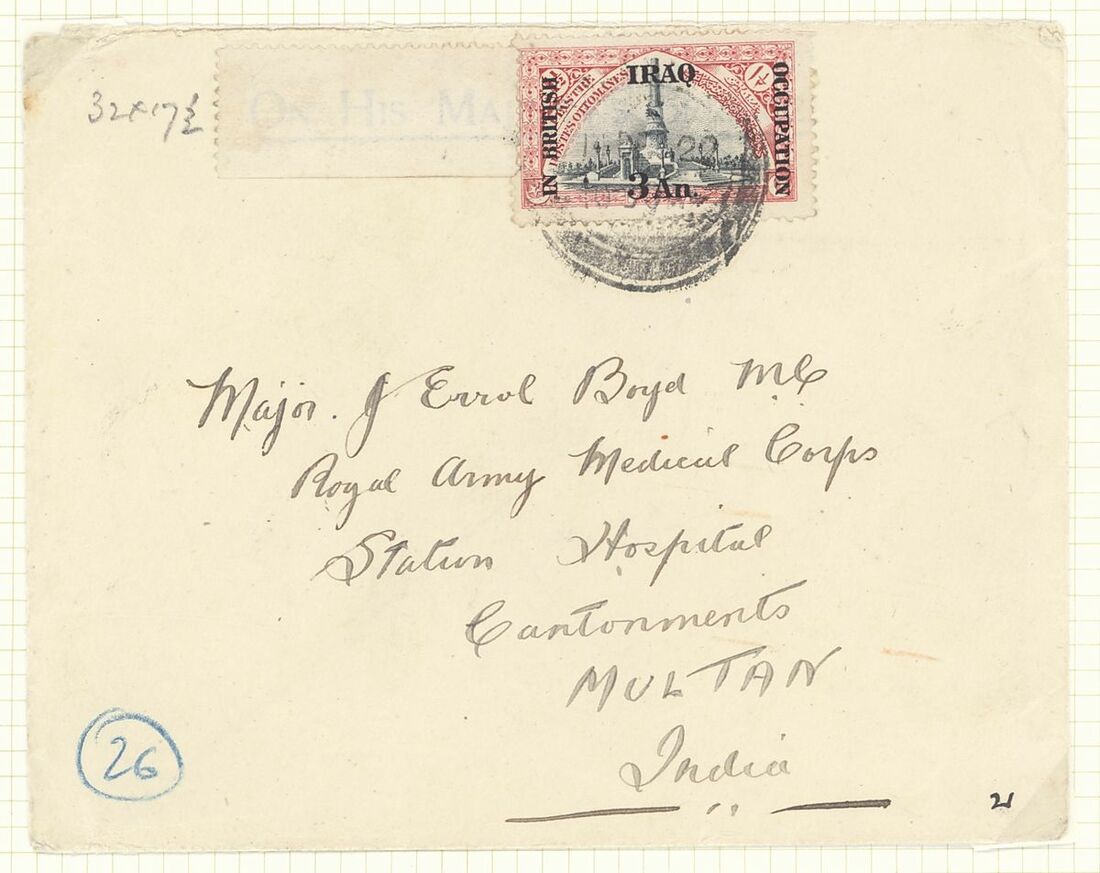 32 x 17½
On His Ma
IRAQ
IN BRITISH
OCCUPATION
POSTES OTTOMANES
PIASTRE
1½
3 An.
20
Major. J Errol Boyd MC
Royal Army Medical Corps
Station Hospital
Cantonments
MULTAN
India
26
21